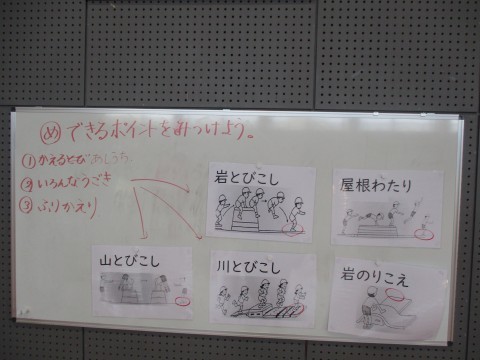 め できるポイントをみつけよう。
① かえるとび
② いろんなうごき
③ ふりかえり
岩とびこし
屋根わたり
山とびこし
川とびこし
岩のりこえ